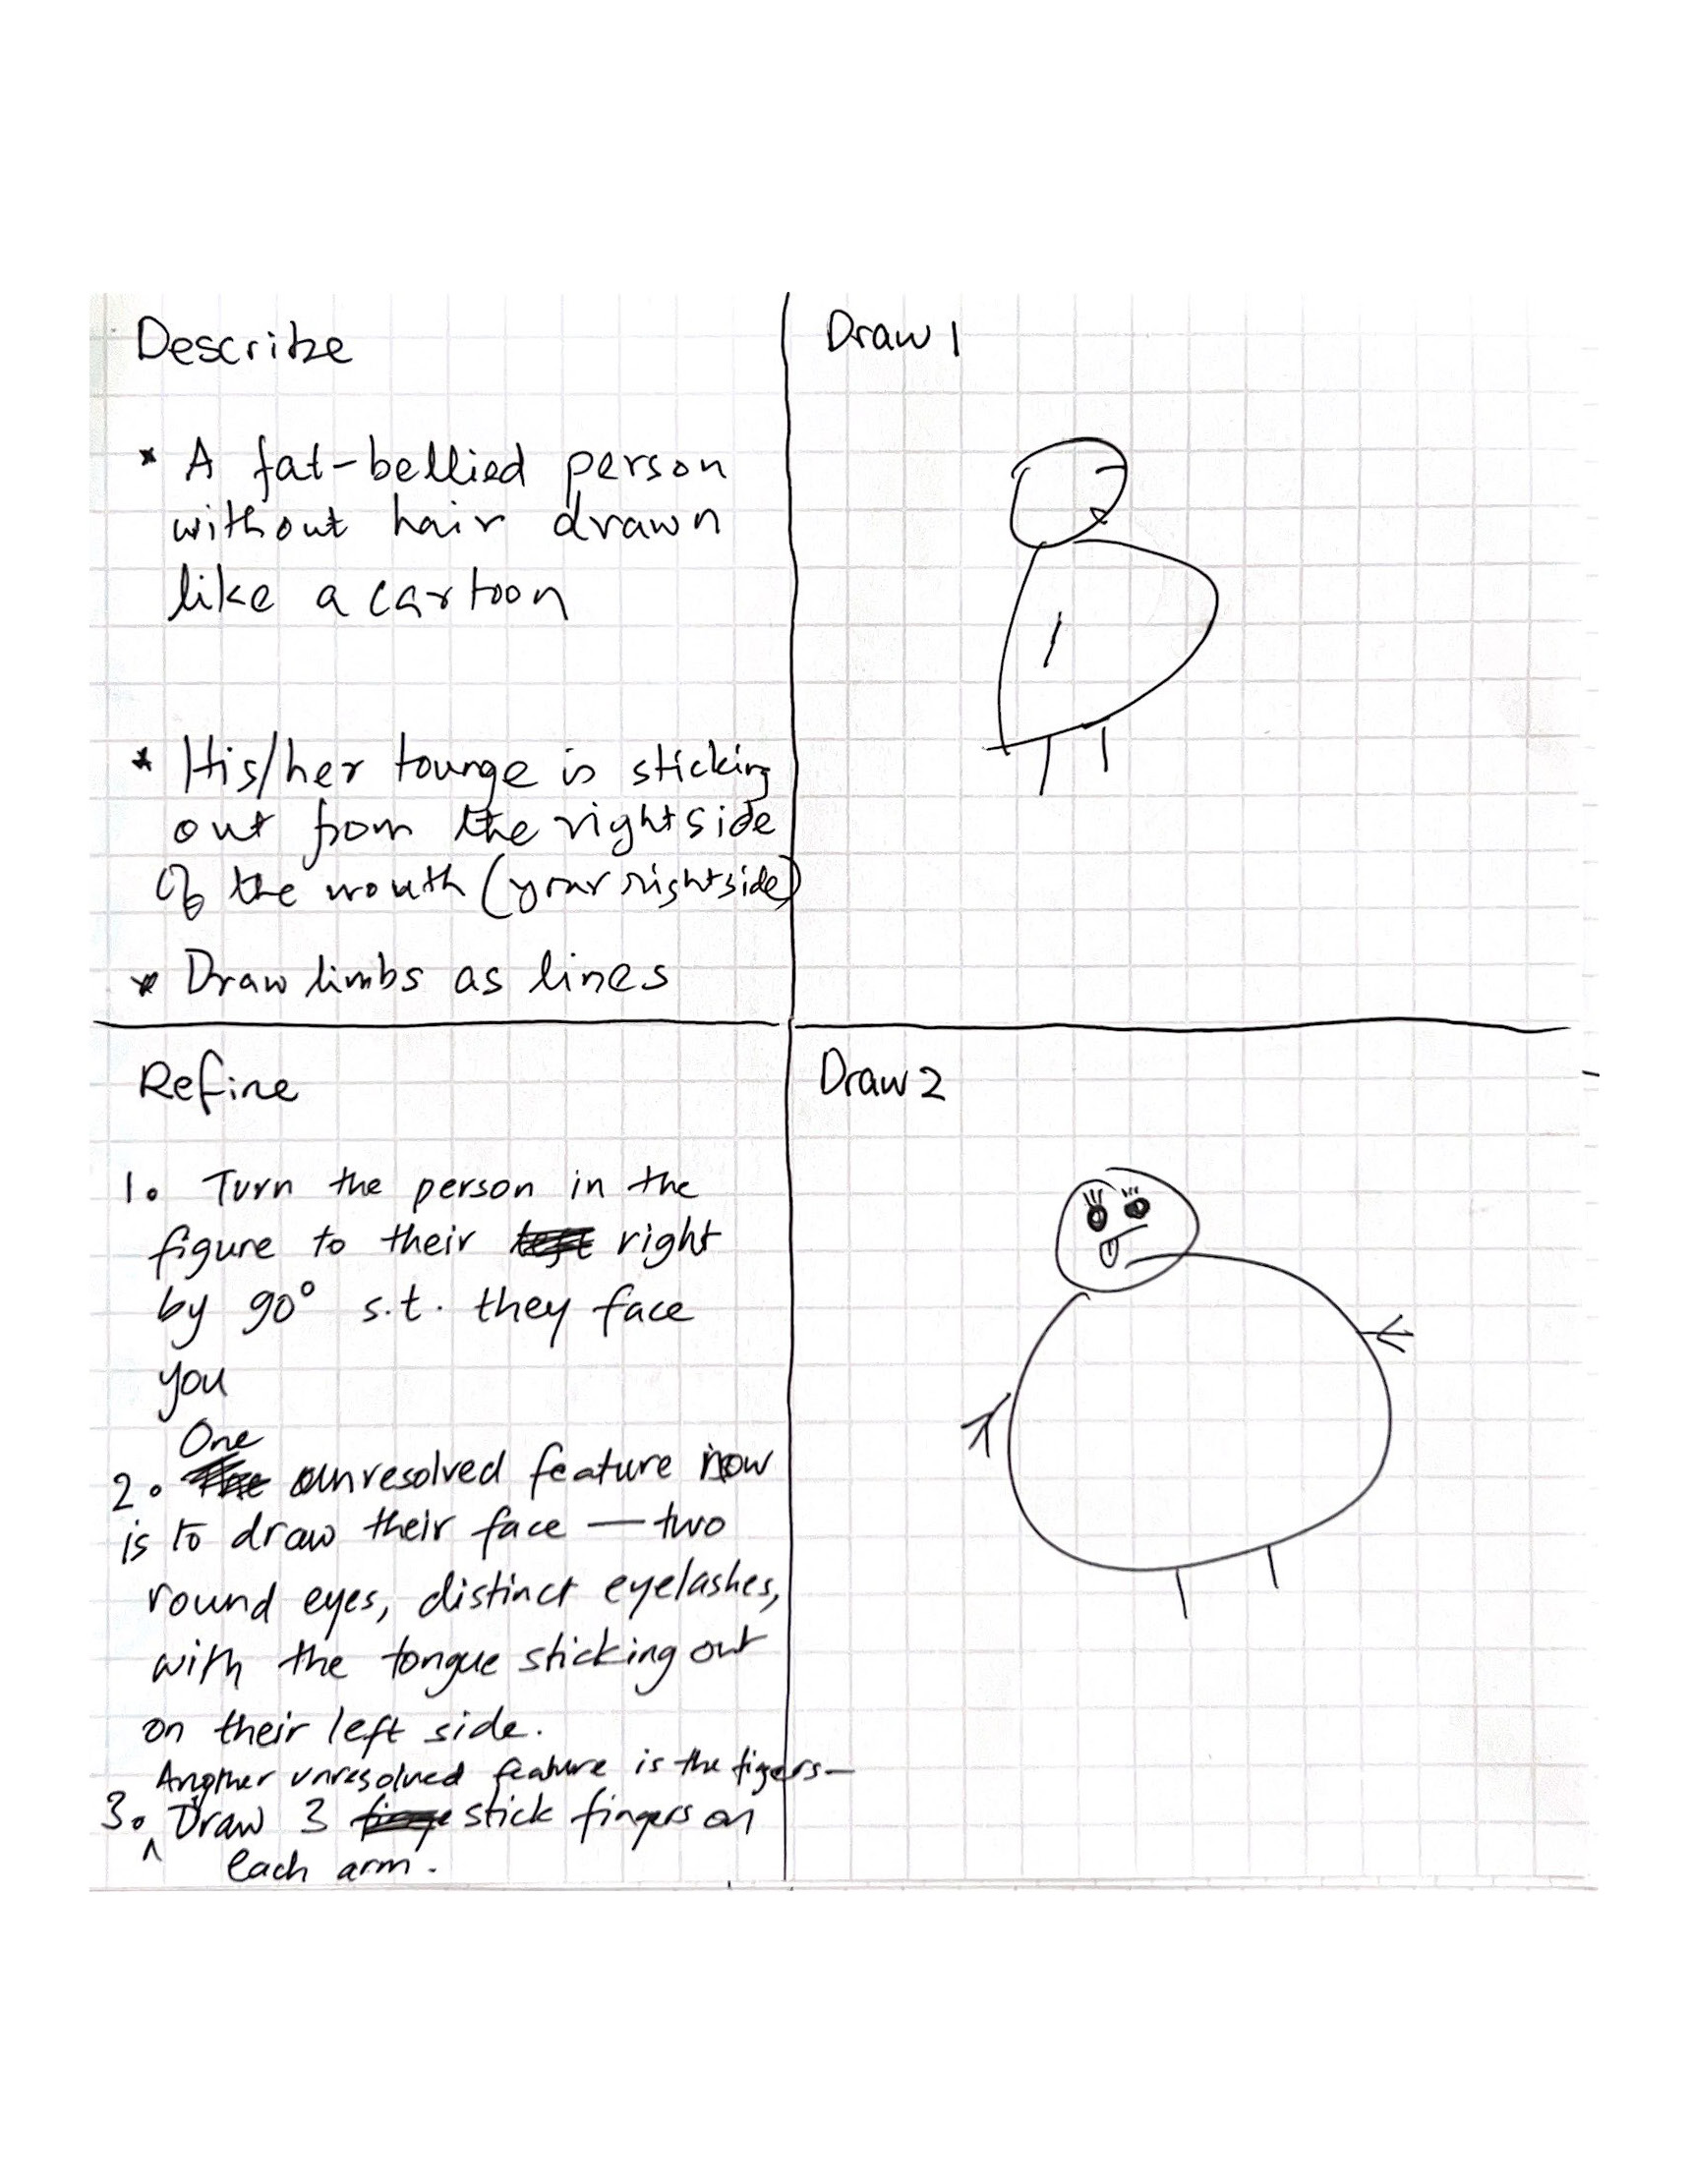 Describe
* A fat-bellied person
without hair drawn
like a cartoon
* His/her tounge is sticking
out from the right side
of the mouth (your right side)
* Draw limbs as lines
Draw 1
Refine
1. Turn the person in the
figure to their right
by 90° s.t. they face
you
2. One unresolved feature now
is to draw their face — two
round eyes, distinct eyelashes,
with the tongue sticking out
on their left side.
3. Another unresolved feature is the figers—
Draw 3 stick fingers on
each arm.
Draw 2